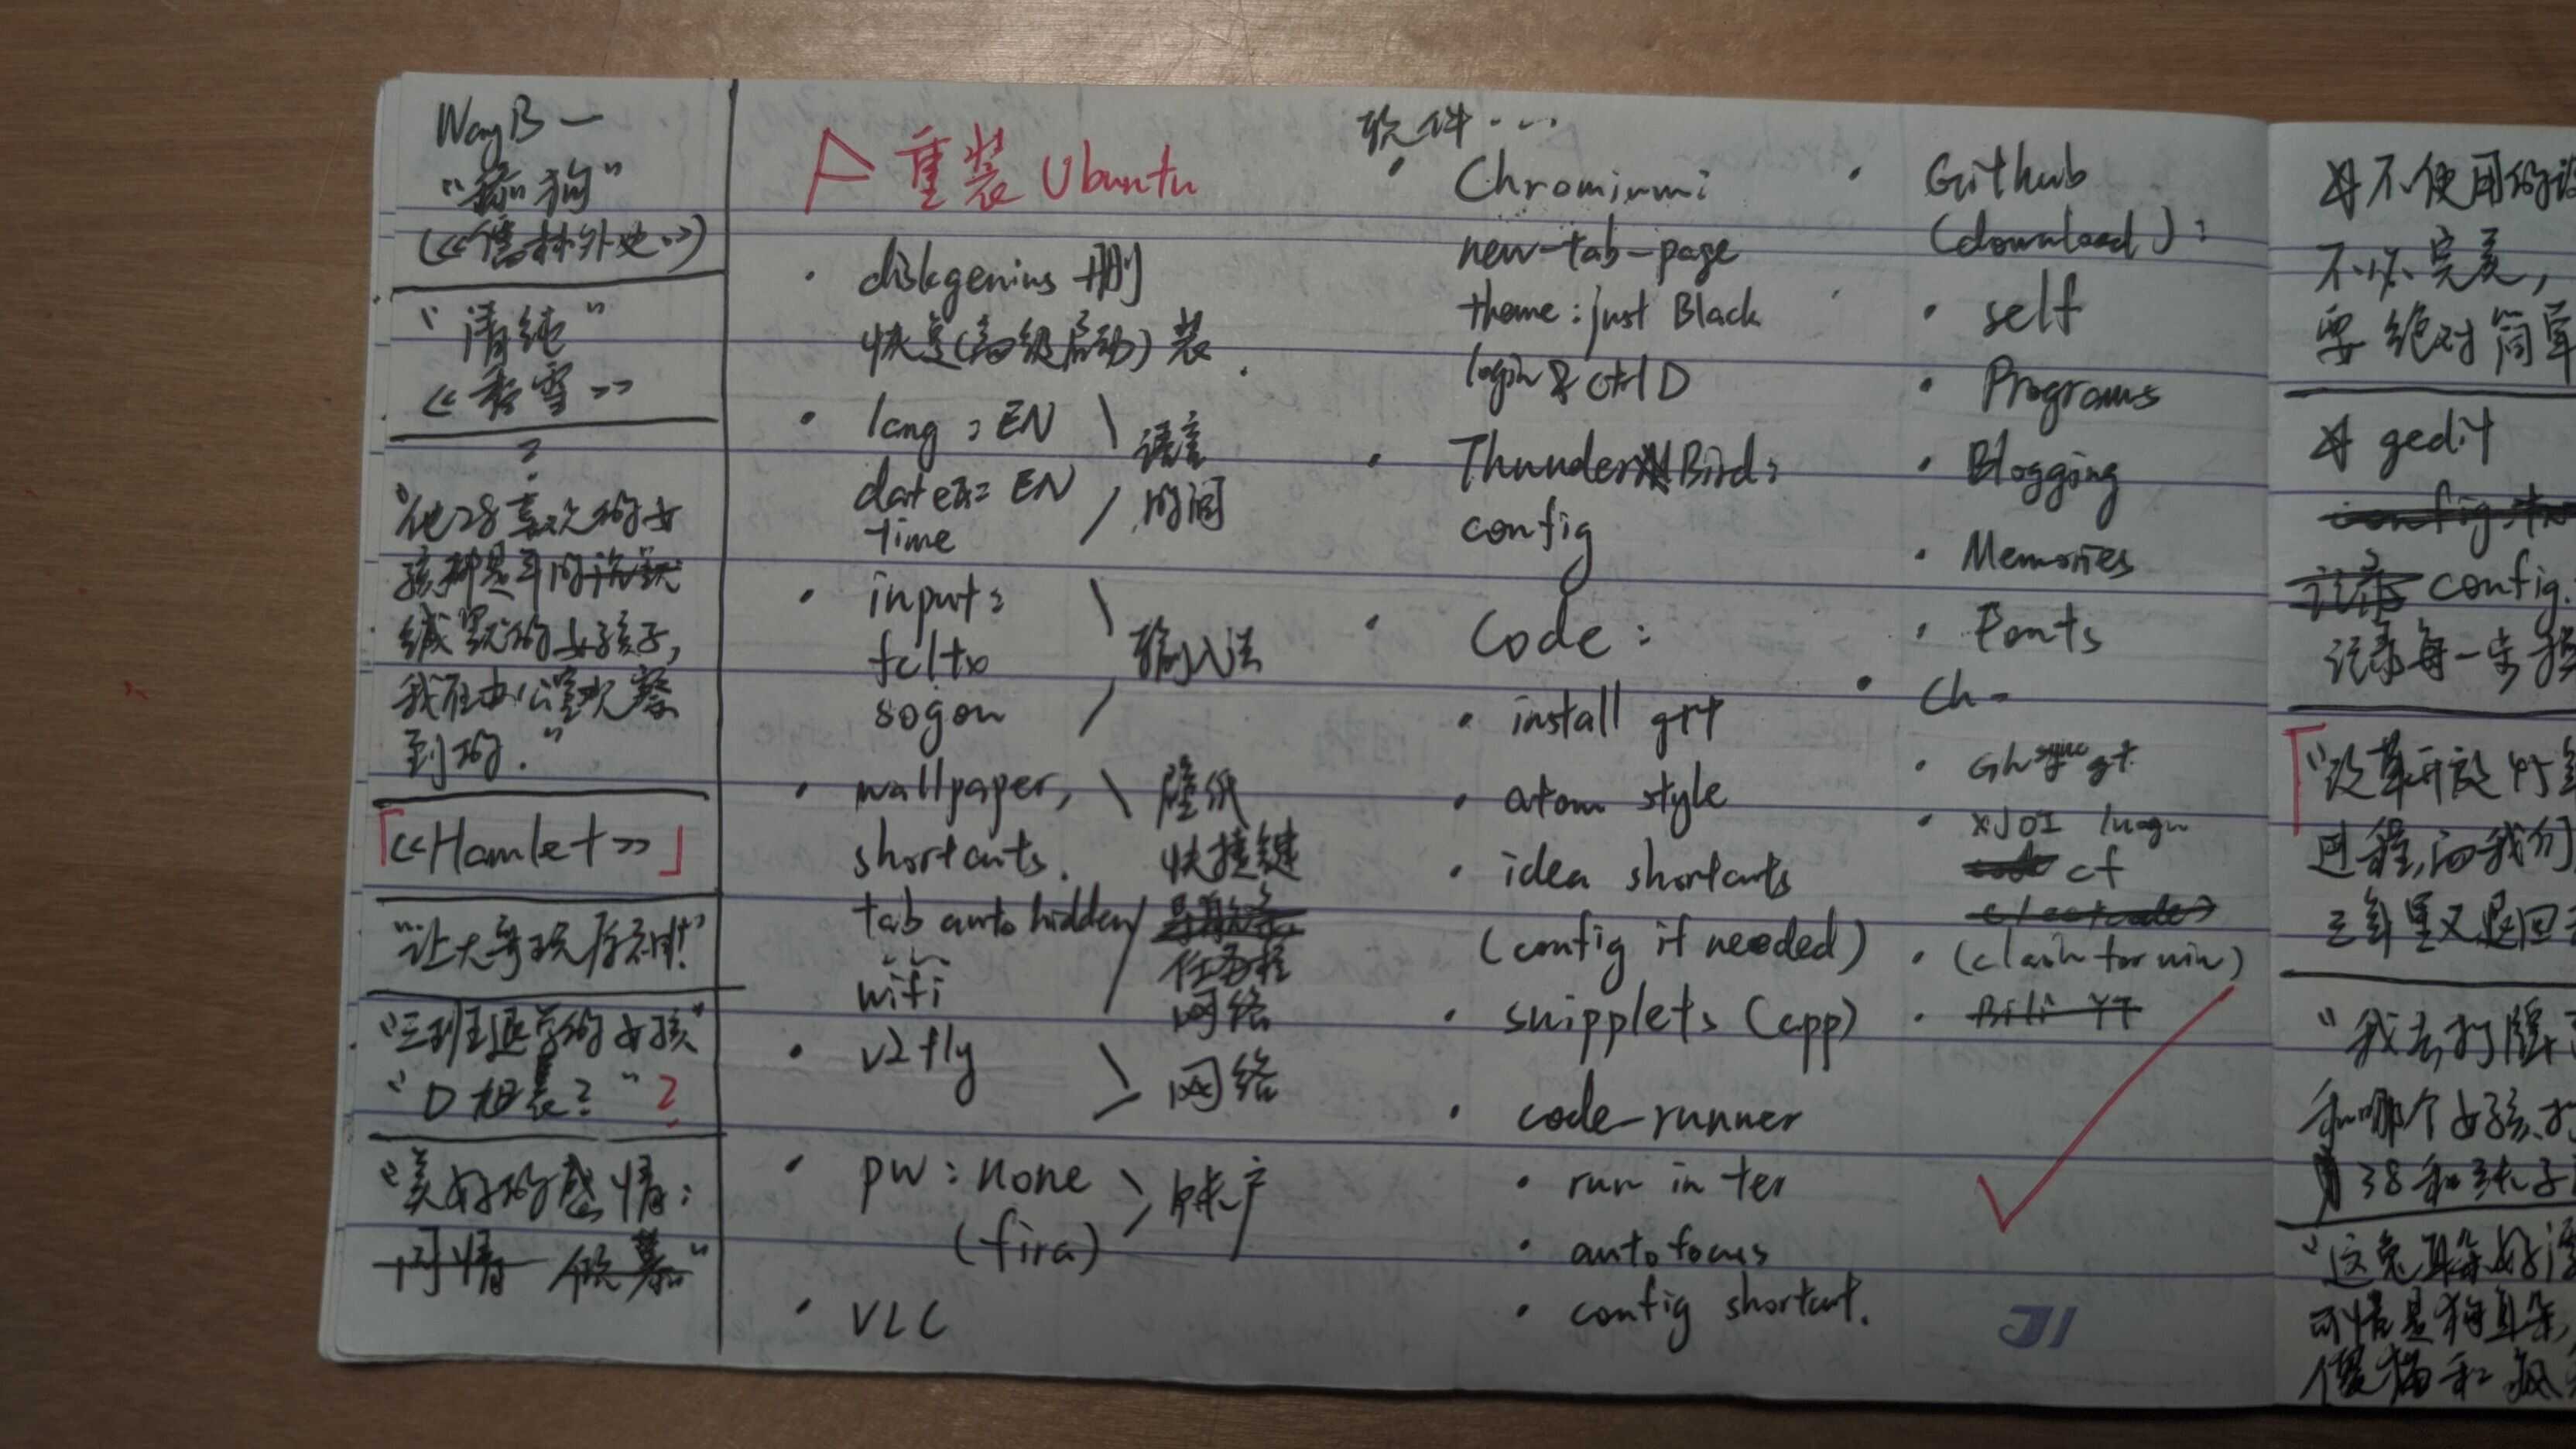 WangB一
"舔狗"
(《儒林外史》)
"清纯"
《香雪》
?
"他28喜欢的女
缄默的女孩子,
我在办公室观察
到的."
「《Hamlet》」
"让大哥玩原神!"
"三班退学的女孩"
?
"美好的感情:
重装 Ubuntu
· diskgenius 删
恢复(高级启动)装.
· lang : EN
date : EN
time
语言
时间
· input :
fcitx
sogou
输入法
· wallpaper,
shortcuts.
tab auto hidden
wifi
壁纸
快捷键
任务栏
网络
· v2fly
网络
· pw : none
(fira)
账户
· VLC
软件...
· Chromium:
new-tab-page
theme : just Black
login & ctrl D
· ThunderBird:
config
· Code :
· install git
· atom style
· idea shortcuts
(config if needed)
· snipplets (cpp)
· code-runner
· run in ter
· auto focus
· config shortcut.
· Github
(download) :
· self
· Programs
· Blogging
· Memories
· Fonts
· Ch-
· Gh sync gt
· XJOI luogu
cf
· (clash for win)
· Bili YT
JI
不使用的
不必完美,
要绝对简单
gedit
记录 config.
记录每一步
「"改革开放
过程,而我们
三年里又退回
"我去打牌
和哪个女孩
38和
"这兔耳朵好
可惜是狗耳朵,
傻猫和疯